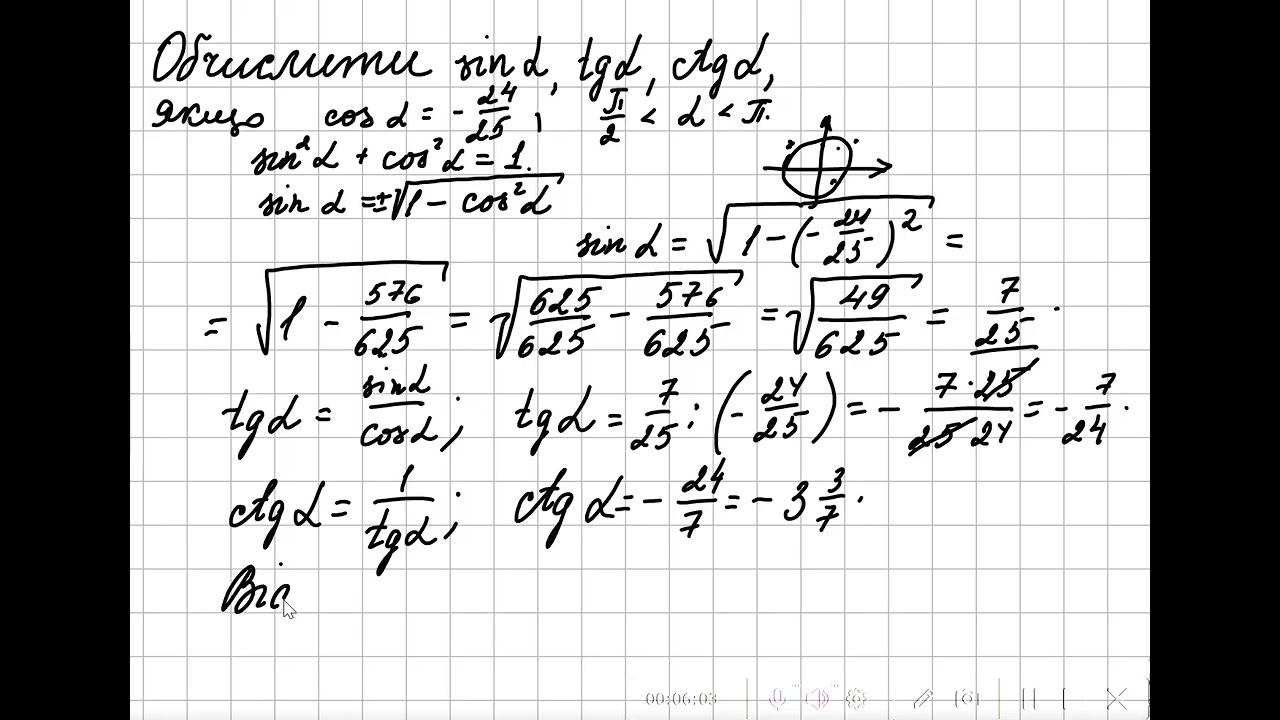 Обчислити sin α, tg α, ctg α,
якщо cos α = - 24/25, π/2 < α < π.
sin²α + cos²α = 1.
sin α = ±√(1 - cos²α)
sin α = √(1 - (- 24/25)²) =
= √(1 - 576/625) = √(625/625 - 576/625) = √(49/625) = 7/25.
tg α = sin α/cos α; tg α = 7/25 : (- 24/25) = - 7·25/25 24 = - 7/24.
ctg α = 1/tg α; ctg α = - 24/7 = - 3 3/7.
Від
00:06:03